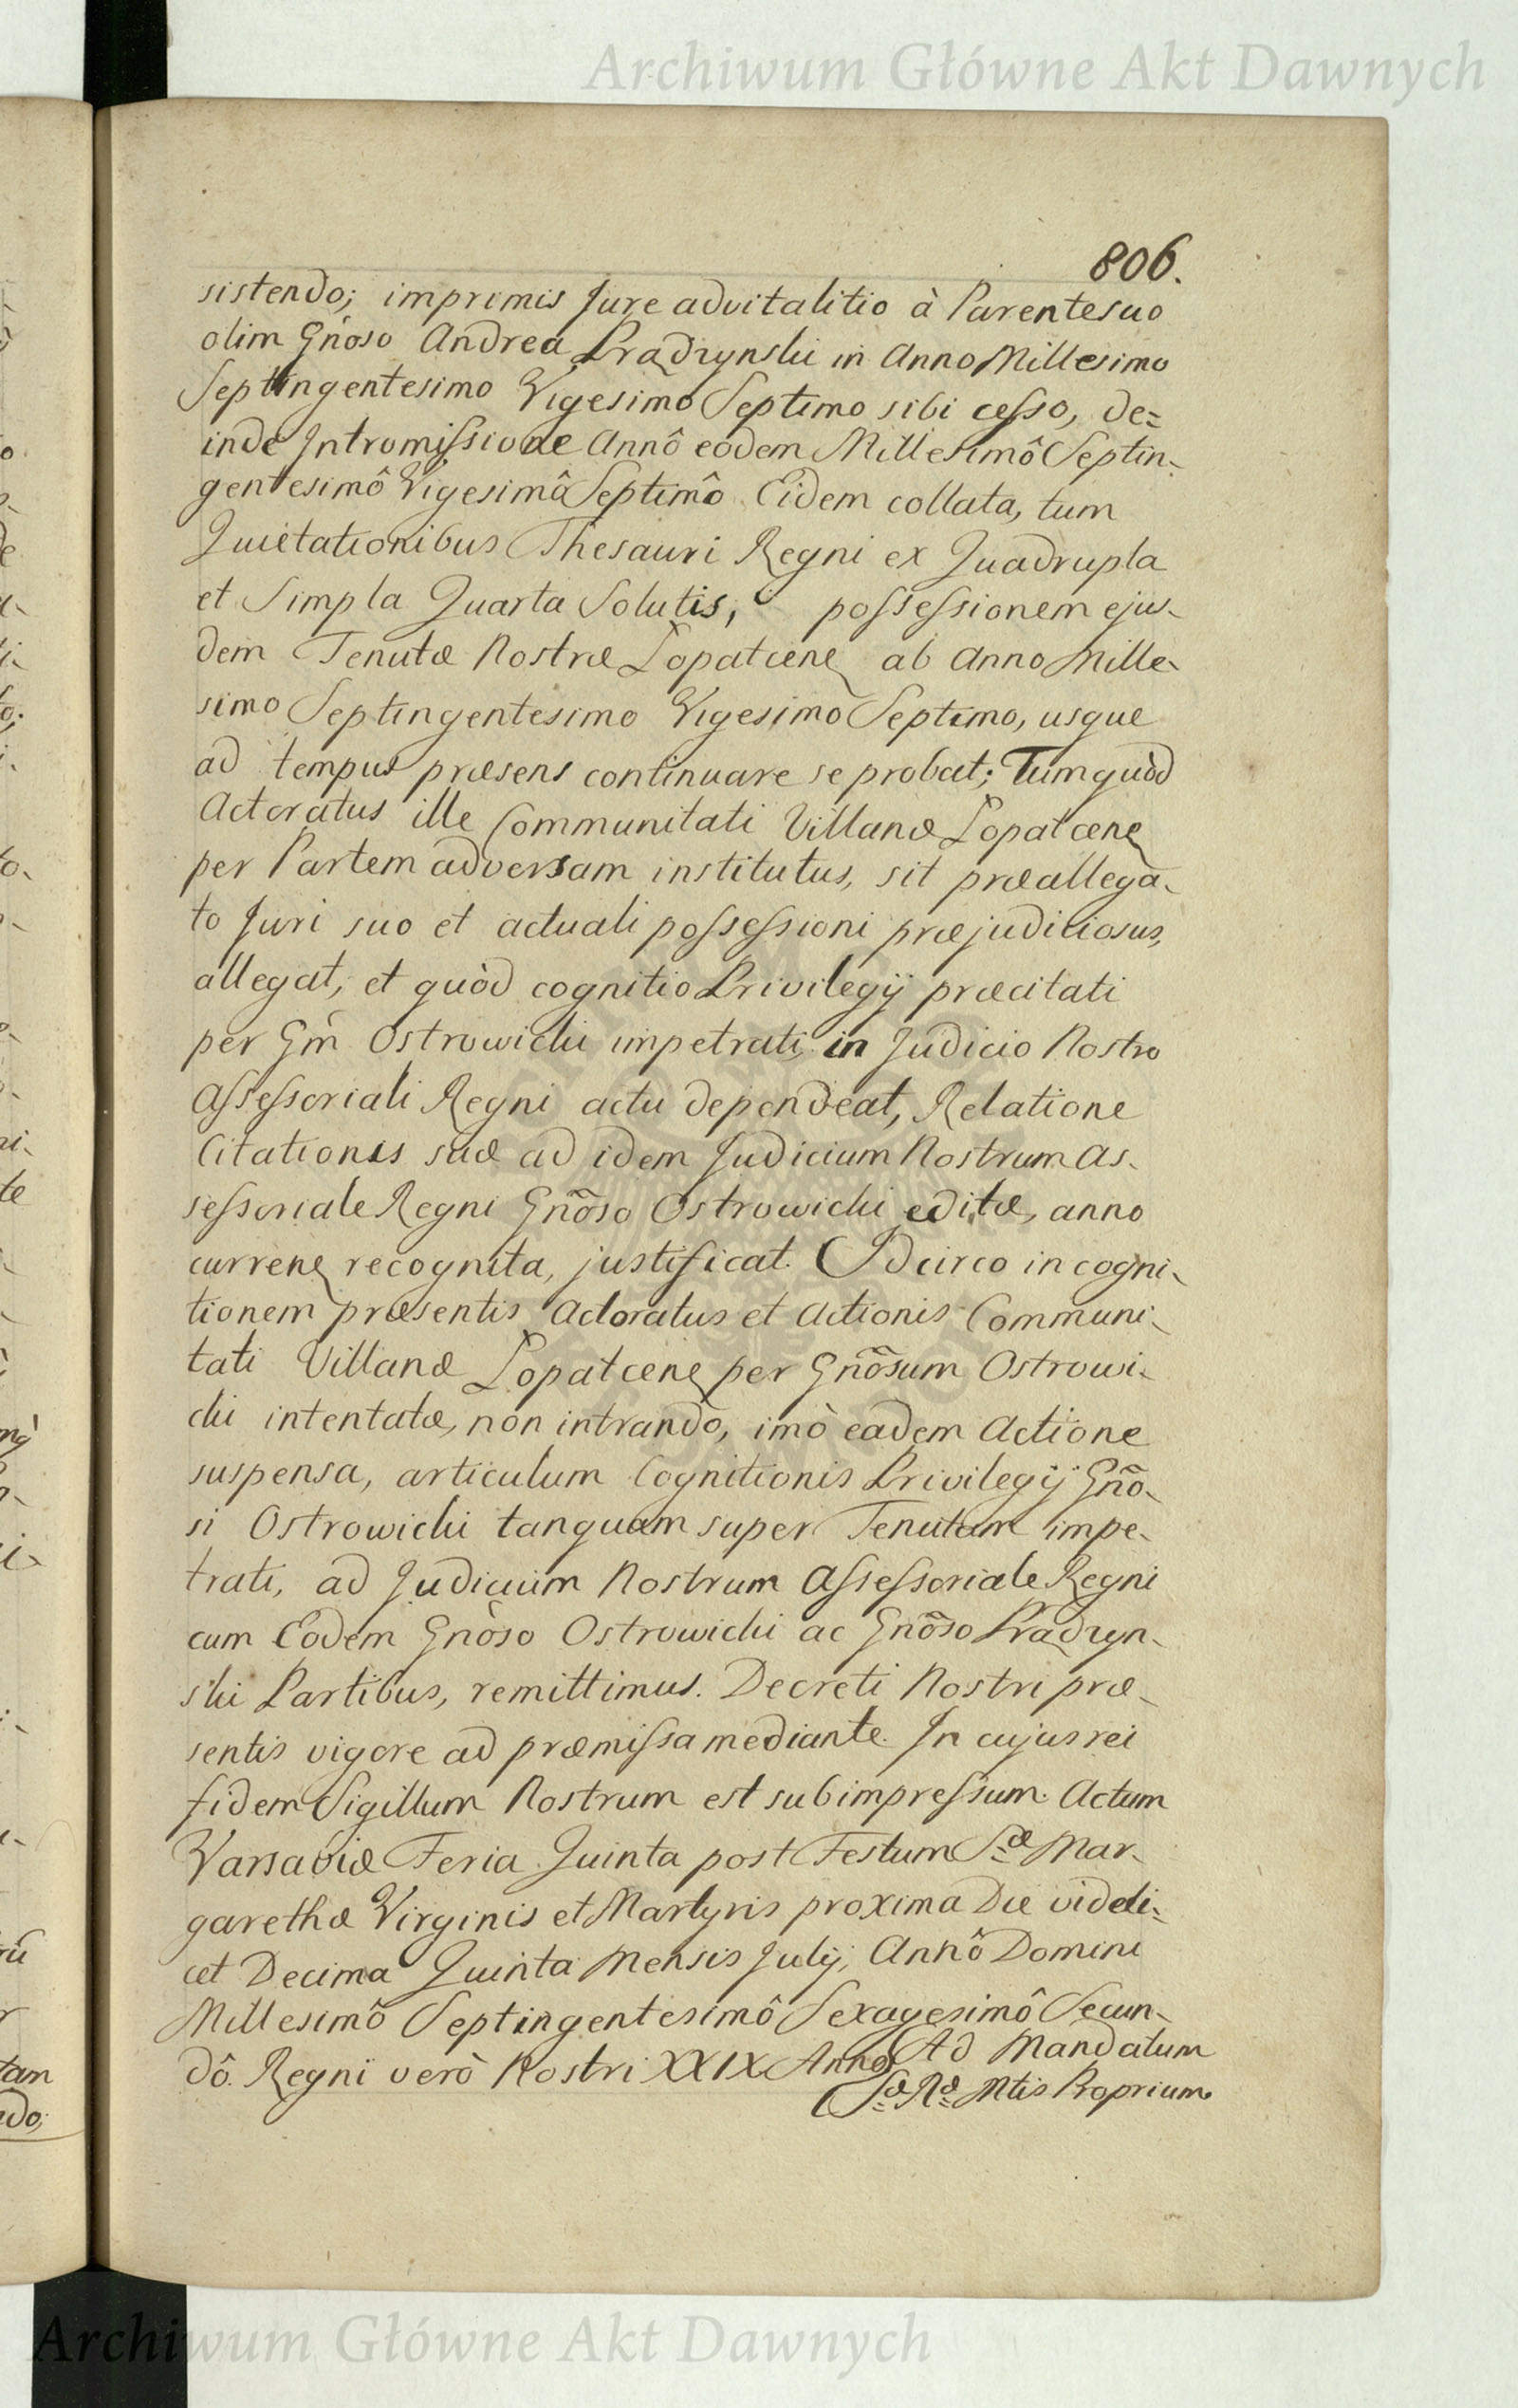 Archiwum Główne Akt Dawnych
806.
sistendo; imprimis Jure advitalitio à Parente suo
olim Gnoso Andrea Prądzynski in Anno Millesimo
Septingentesimo Vigesimo Septimo sibi cesso, de=
inde Intromissione Annô eodem Millesimô Septin-
gentesimô Vigesimô Septimô Eidem collata, tum
Quietationibus Thesauri Regni ex Quadrupla
et Simpla Quarta Solutis, possessionem ejus-
dem Tenutæ Nostræ Łopatcenę ab Anno Mille-
simo Septingentesimo Vigesimo Septimo, usque
ad tempus præsens continuare se probat; Tum quòd
Actoratus ille Communitati Villanæ Łopatcenę
per Partem adversam institutus, sit præallega-
to Juri suo et actuali possessioni præjudiciosus,
allegat, et quòd cognitio Privilegij præcitati
per Gm Ostrowicki impetrati in Judicio Nostro
Assessoriali Regni actu dependeat, Relatione
Citationis suæ ad idem Judicium Nostrum As-
sessoriale Regni Gnoso Ostrowicki editæ, anno
currenę recognita, justificat. Idcirco in cogni-
tionem præsentis Actoratus et Actionis Communi-
tati Villanæ Łopatcenę per Gnosum Ostrowi-
cki intentatæ, non intrando, imò eadem Actione
suspensa, articulum Cognitionis Privilegij Gno-
si Ostrowicki tanquam super Tenutam impe-
trati, ad Judicium Nostrum Assessoriale Regni
cum Eodem Gnoso Ostrowicki ac Gnoso Prądzyn-
ski Partibus, remittimus. Decreti Nostri præ-
sentis vigore ad præmissa mediante. In cujus rei
fidem Sigillum Nostrum est subimpressum. Actum
Varsaviæ Feria Quinta post Festum Sæ Mar-
garethæ Virginis et Martyris proxima Die videli-
cet Decima Quinta Mensis Julij, Annô Domini
Millesimô Septingentesimô Sexagesimô Secun-
dô. Regni verò Nostri XXIX Anno Ad Mandatum
Sæ Ræ Mtis Proprium
Archiwum Główne Akt Dawnych